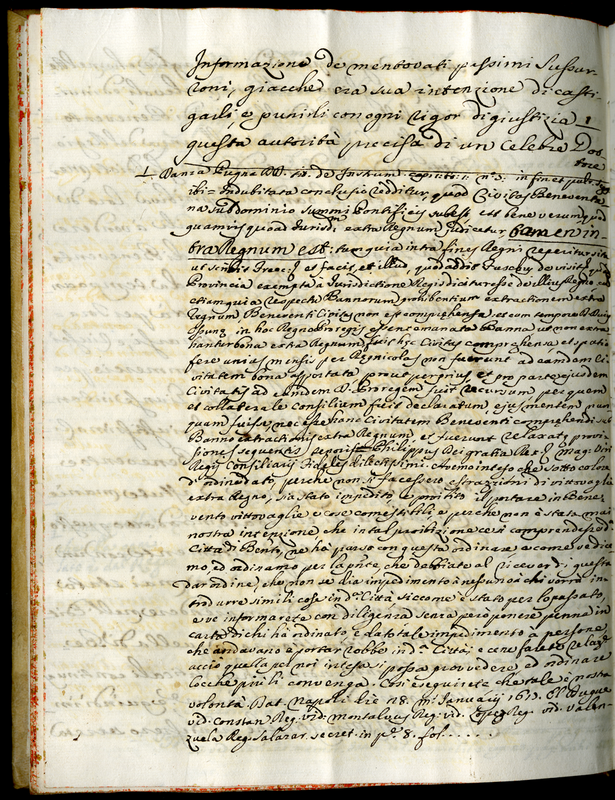 Informazione de mentovati pessimi Sussur-
roni, giacche era sua intenzione di casti-
garli, e punirli con ogni rigor di giustizia
questa autorità precisa di un celebre Dot-
tore
in fin et pult.
ibi: Indubitata conclusio redditur, quod Civitas Beneventa-
na sub dominio Summi Pontificis subest, est bene verum quod
quamvis quoad Jurisd. extra Regnum judicetur, tamen in-
tra Regnum est: tum quia intra fines Regni reperitur sita
ut scribit et facit, et illud, quod addit de visit.
Provincia exempta a Jurisdictione Regis dicitur esse de illius Regno
etiam quia respectu Bannorum prohibentium extractionem extra
Regnum Beneventi Civitas non est comprehensa, et cum tempore
in hoc Regno Proregis essent emanata Banna ut non extra-
hantur bona extra Regnum, fuit hęc Civitas comprehensa et spatio
fere unius mensis per Regnicolas non fuerunt ad eamdem Ci-
vitatem bona asportata prout prius et pro parte ejusdem
Civitatis ad eumdem D. Proregem fuit recursum per quem
et collaterale consilium fuit declaratum, ejus mentem nun-
quam fuisse, nec esse hanc Civitatem Beneventi comprehendi sub
Banno extractionis extra Regnum, et fuerunt relaxatę provi-
siones sequentis tenoris Philippus Dei gratia Rex
Regij Consiliarij Fideles dilectissimi. Avemo inteso che sotto colore
d'ordine dato, perche non si facessero estrazioni di vittovaglie
extra Regno, sia stato impedito, e proibito il portare in Bene-
vento vittovaglie e cose comestibili e perche non è stata mai
nostra intenzione che in tal proibizione ce si comprendesse d.ª
Città di Bento, ne hà parso con questa ordinare, e come vedire-
mo, ed ordinamo per la pnte, che debbiate al ricever di questa
dar ordine, che non se dia impedimento à nessuno a chi vorrà in-
trodurre simili cose in d.ª Città siccome è stato per lo passato,
e ve informarete con diligenza senza però ponere penna in
carta di chi hà ordinato, e dato tale impedimento a persone,
che andavano a portar robbe in d.ª Città; e ce ne farete relaz.e
acciò quella per noi intesa si possa provvedere ed ordinare
locche più li convenga. Così eseguirete che tale è nostra
volontà. Dat. Napoli die 18. m. Januarij
vid. Constan Reg. vid. Montalvus Reg. vid. Lopez Reg. vid. Valen-
zuela Reg. Salazar secret. in p.º 8. fol. . . . . .